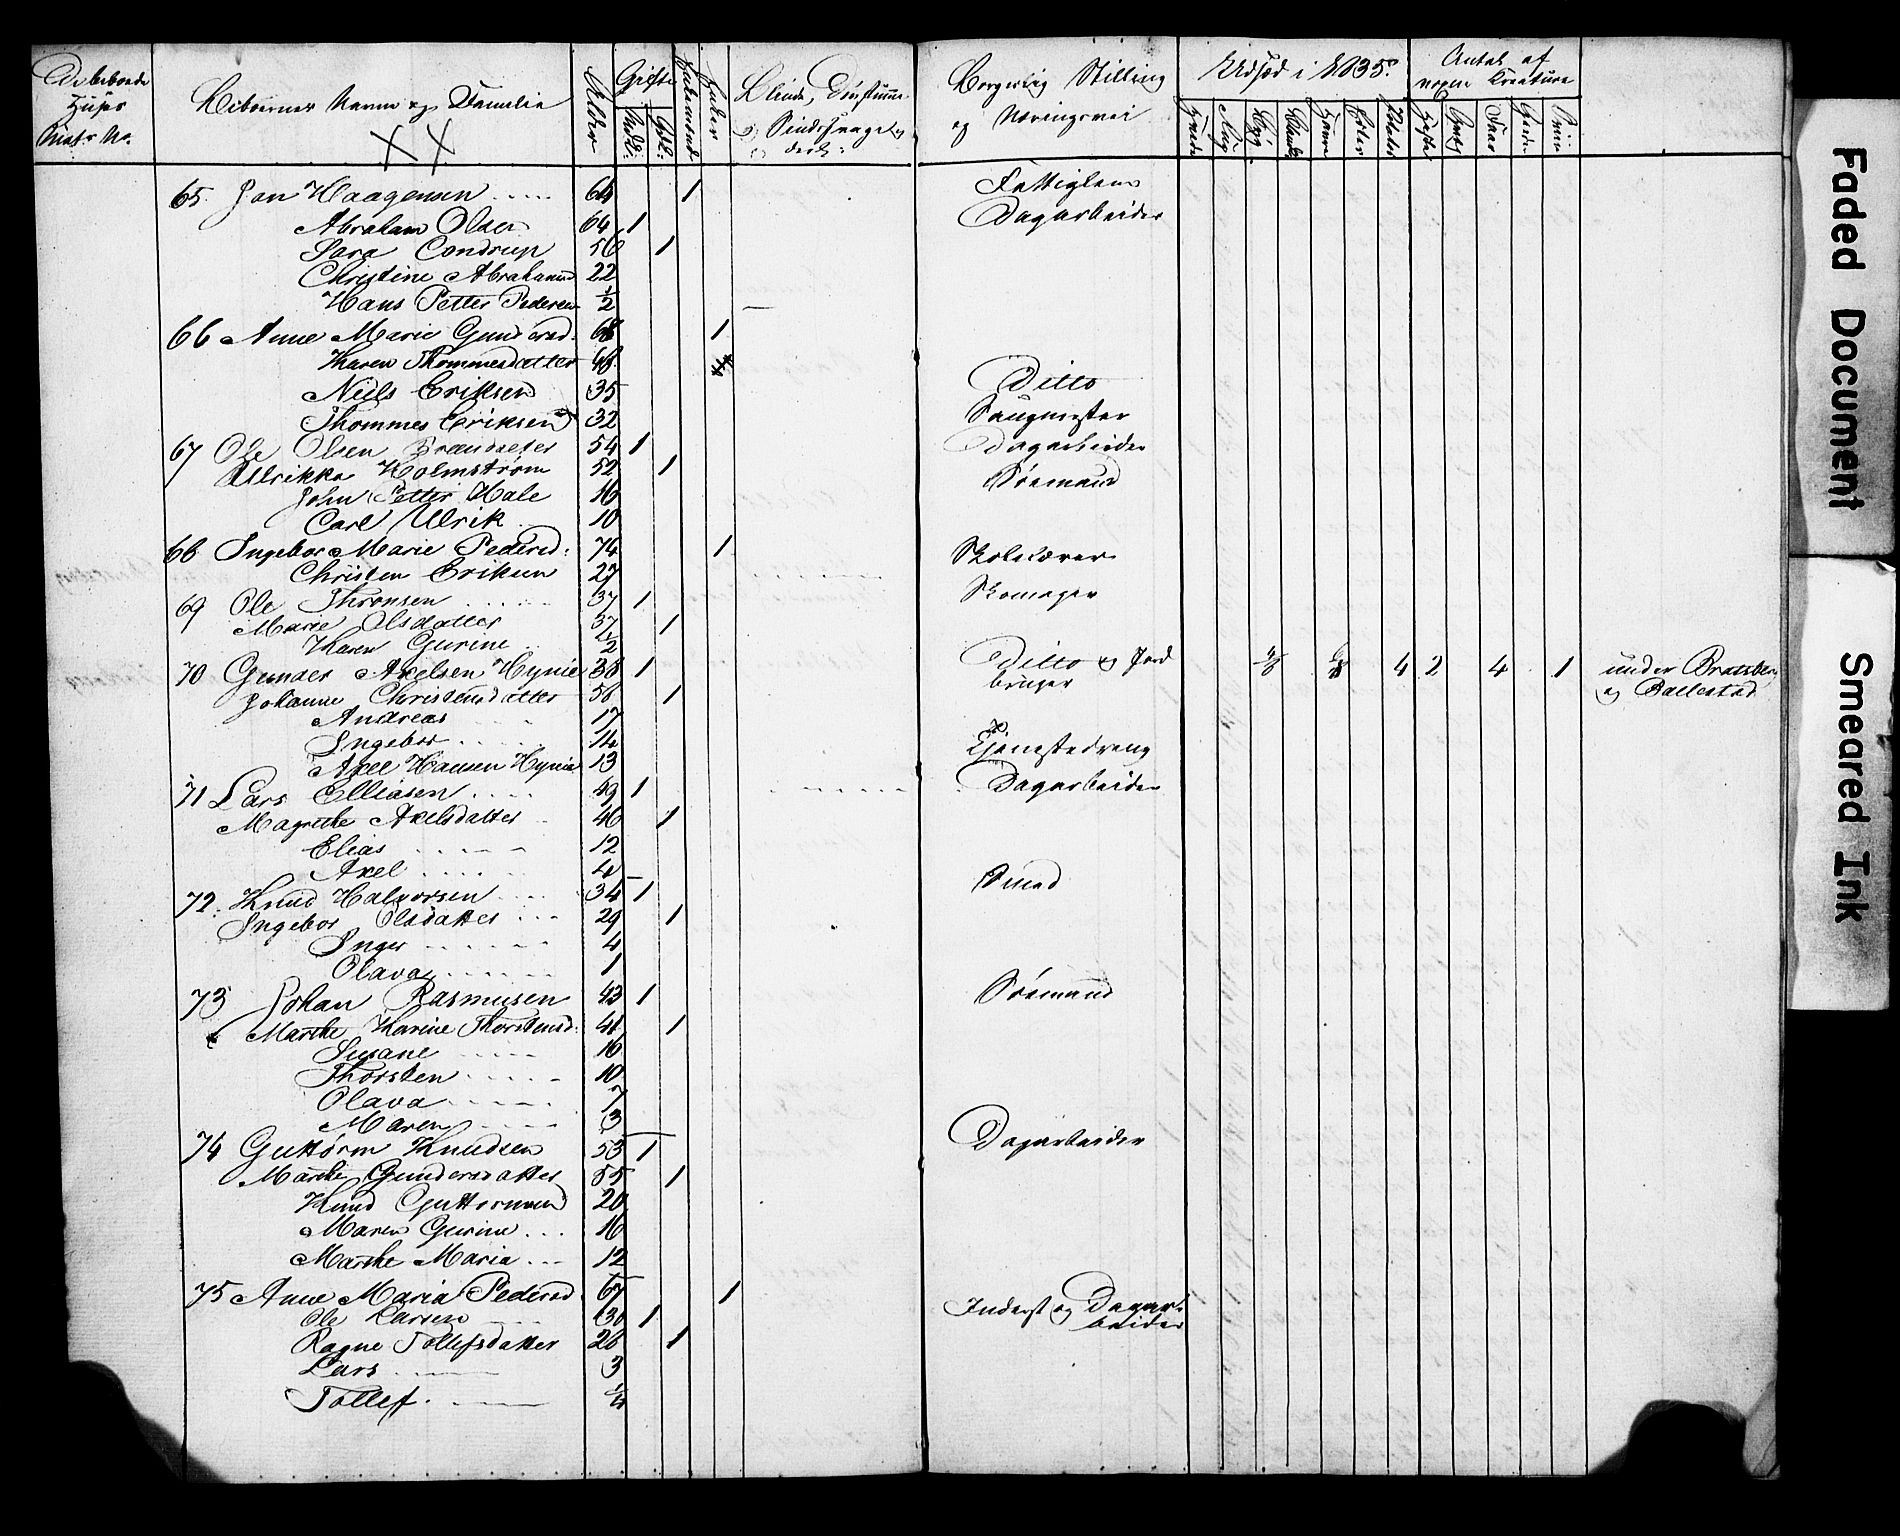 De beboede Huses Matr No.
Beboernes Navne og Familie
Alder
Gifte
Mdk: Qdk:
Enkemænd
Enker
Blinde, Døvstumme
og Sindssvage
Borgerlig Stilling
og Næringsvei
Udsæd i 1835.
Hvede Rug Byg Bland Havre Erter Poteter
Antal af
Creature
Heste Qvæg Faar Geder Sviin
65. Jan Haagensen 64 1 Fattiglem
Abraham Olsen 64 1 Dagarbeider
Sara Condrup 56 1
Christine Abrahamsd 22
Hans Petter Pedersen 1/2
66 Anne Marie Gundersd. 68 1
Karen Thommesdatter 48
Niels Eriksen 35 Ditto
Thommes Eriksen 32 Saugmester
67 Ole Olsen 54 1 Dagarbeider
Ulrikka Holmstrøm 52 1 Søemand
John Petter Hale 16
Carl Ulrik 10
68 Ingebor Marie Pedersd: 74 1 Skolelærer
Christen Eriksen 27
69 Ole Thronsen 37 1 Skomager
Marie Olsdatter 37 1
Karen Gurine 1/2
70 Gunder Axelsen Hynie 38 1 Ditto og Jord 4 2 4 1 under Bratsberg
Johanne Christensdatter 1 bruger og Ballestad
Andreas 17
Ingebor 14
Axel Hansen Hynie 13 Tjenestedreng
71 Lars Elliasen 49 1 Dagarbeider
Magrethe Axelsdatter 46 1
Elias 12
Axel 4
72. Knud Halvorsen 34 1 Smed
Ingebor Olsdatter 29 1
Inger 4
Olava 1
73 Johan Rasmusen 43 1 Søemand
Marthe Karine Thorstensd: 41 1
Susane 16
Thorsten 10
Olava 7
Maren 3
74 Guttorm Knudsen 53 1 Dagarbeider
Marthe Gundersdatter 55 1
Knud Guttormsen 20
Maren Gurine 16
Marthe Maria 12
75 Anne Maria Pedersd. 67 1
Ole Larsen 30 1 Inderst og Dagar-
Ragne Tollefsdatter 26 1 beider
Lars 3
Tollef 1/4
Faded Document
Smeared Ink